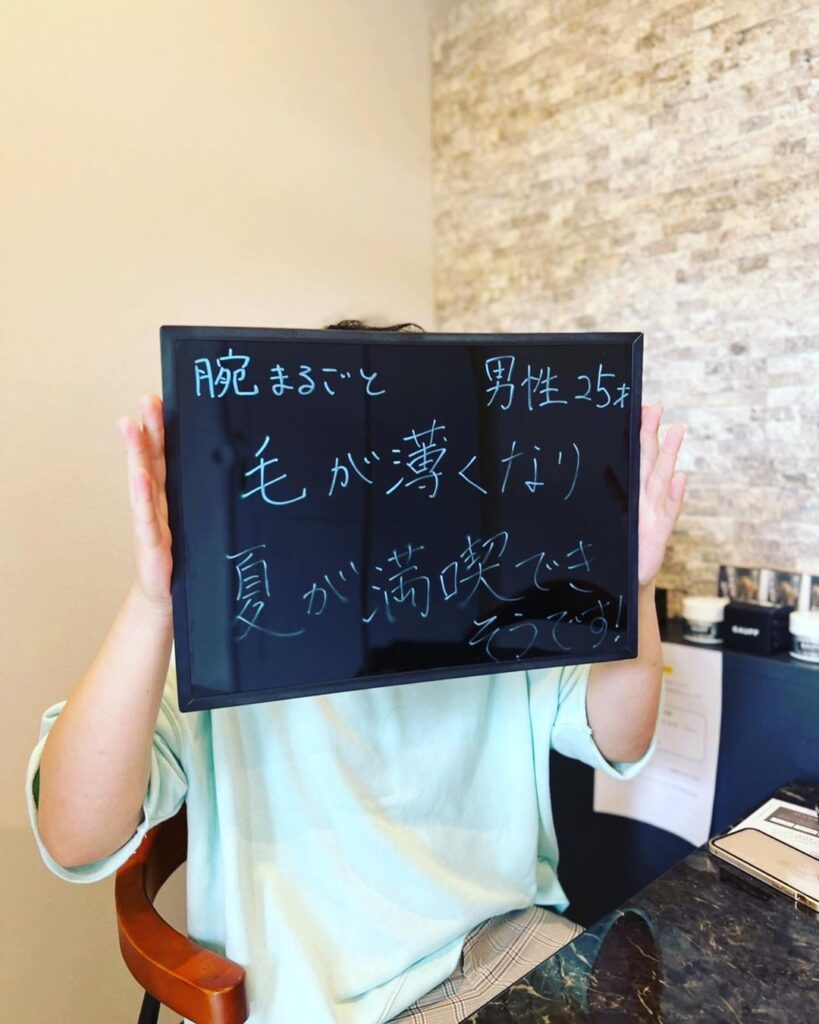 腕まるごと 男性25才
毛が薄くなり
夏が満喫でき
そうです!